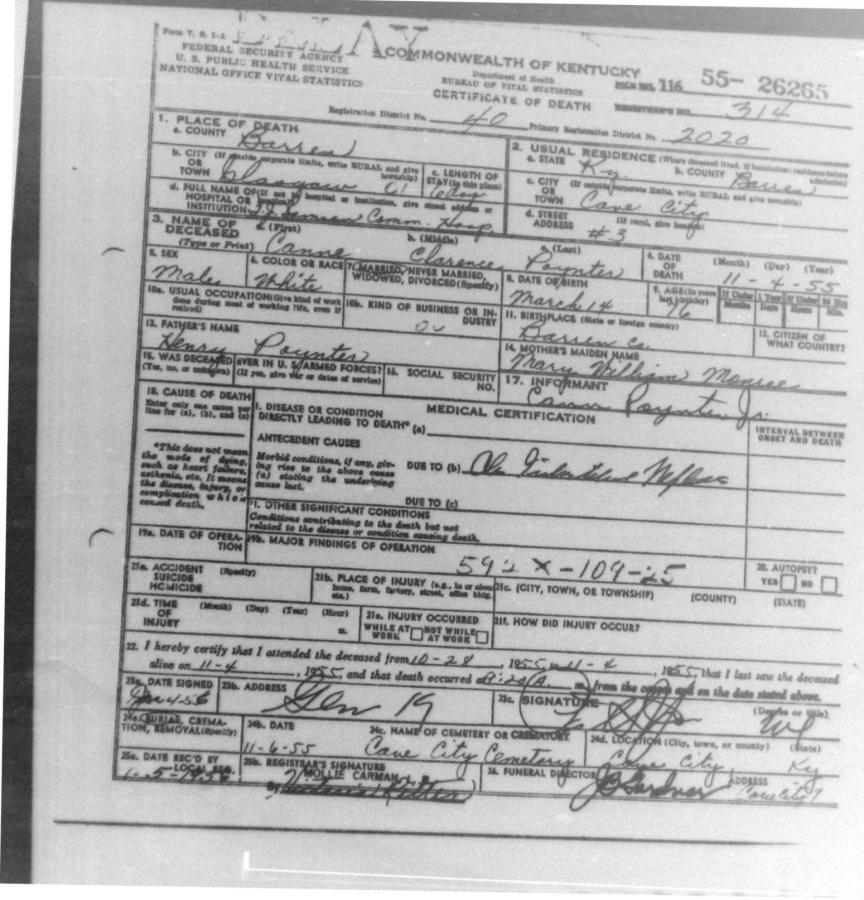 DELAY
Form V. S. 1-A
FEDERAL SECURITY AGENCY
U. S. PUBLIC HEALTH SERVICE
NATIONAL OFFICE VITAL STATISTICS
COMMONWEALTH OF KENTUCKY
Department of Health
BUREAU OF VITAL STATISTICS
CERTIFICATE OF DEATH
FILE NO. 116 55- 26265
REGISTRAR'S NO. 314
Registration District No. 40 Primary Registration District No. 2020
1. PLACE OF DEATH
a. COUNTY Barren
b. CITY (If outside corporate limits, write RURAL and give township)
OR
TOWN Glasgow
c. LENGTH OF STAY (in this place)
6 day
d. FULL NAME OF (If not in hospital or institution, give street address or location)
HOSPITAL OR
INSTITUTION Samson Comm. Hosp.
2. USUAL RESIDENCE (Where deceased lived. If institution: residence before admission)
a. STATE Ky. b. COUNTY Barren
c. CITY (If outside corporate limits, write RURAL and give township)
OR
TOWN Cave City
d. STREET (If rural, give location)
ADDRESS #3
3. NAME OF DECEASED
(Type or Print)
a. (First) Canne b. (Middle) Clarence c. (Last) Poynter
4. DATE OF DEATH (Month) (Day) (Year)
11-4-55
5. SEX
Male
6. COLOR OR RACE
White
7. MARRIED, NEVER MARRIED, WIDOWED, DIVORCED (Specify)
8. DATE OF BIRTH
March 14
9. AGE (In years last birthday)
76
If Under 1 Year If Under 24 Hrs
Months Days Hours Min.
10a. USUAL OCCUPATION (Give kind of work done during most of working life, even if retired)
10b. KIND OF BUSINESS OR INDUSTRY
11. BIRTHPLACE (State or foreign country)
Barren Co.
12. CITIZEN OF WHAT COUNTRY?
13. FATHER'S NAME
Henry Poynter
14. MOTHER'S MAIDEN NAME
Mary William Monroe
15. WAS DECEASED EVER IN U. S. ARMED FORCES?
(Yes, no, or unknown) (If yes, give war or dates of service)
16. SOCIAL SECURITY NO.
17. INFORMANT
Cann Poynter Jr.
18. CAUSE OF DEATH
Enter only one cause per line for (a), (b), and (c)
MEDICAL CERTIFICATION
INTERVAL BETWEEN ONSET AND DEATH
I. DISEASE OR CONDITION
DIRECTLY LEADING TO DEATH* (a)
*This does not mean the mode of dying, such as heart failure, asthenia, etc. It means the disease, injury, or complication which caused death.
ANTECEDENT CAUSES
Morbid conditions, if any, giving rise to the above cause (a) stating the underlying cause last.
DUE TO (b)
DUE TO (c)
II. OTHER SIGNIFICANT CONDITIONS
Conditions contributing to the death but not related to the disease or condition causing death.
19a. DATE OF OPERATION
19b. MAJOR FINDINGS OF OPERATION
592 X-109-25
20. AUTOPSY?
YES NO
21a. ACCIDENT (Specify)
SUICIDE
HOMICIDE
21b. PLACE OF INJURY (e.g., in or about home, farm, factory, street, office bldg., etc.)
21c. (CITY, TOWN, OR TOWNSHIP) (COUNTY) (STATE)
21d. TIME (Month) (Day) (Year) (Hour)
OF
INJURY m.
21e. INJURY OCCURRED
WHILE AT WORK NOT WHILE AT WORK
21f. HOW DID INJURY OCCUR?
22. I hereby certify that I attended the deceased from 10-28, 1955, to 11-4, 1955, that I last saw the deceased
alive on 11-4, 1955, and that death occurred at m., from the causes and on the date stated above.
23a. DATE SIGNED
23b. ADDRESS
23c. SIGNATURE (Degree or title)
24a. BURIAL, CREMATION, REMOVAL (Specify)
24b. DATE
11-6-55
24c. NAME OF CEMETERY OR CREMATORY
Cave City Cemetery
24d. LOCATION (City, town, or county) (State)
Cave City, Ky
25a. DATE REC'D BY LOCAL REG.
25b. REGISTRAR'S SIGNATURE
MOLLIE CARMAN
By
26. FUNERAL DIRECTOR ADDRESS
Gardner Cave City